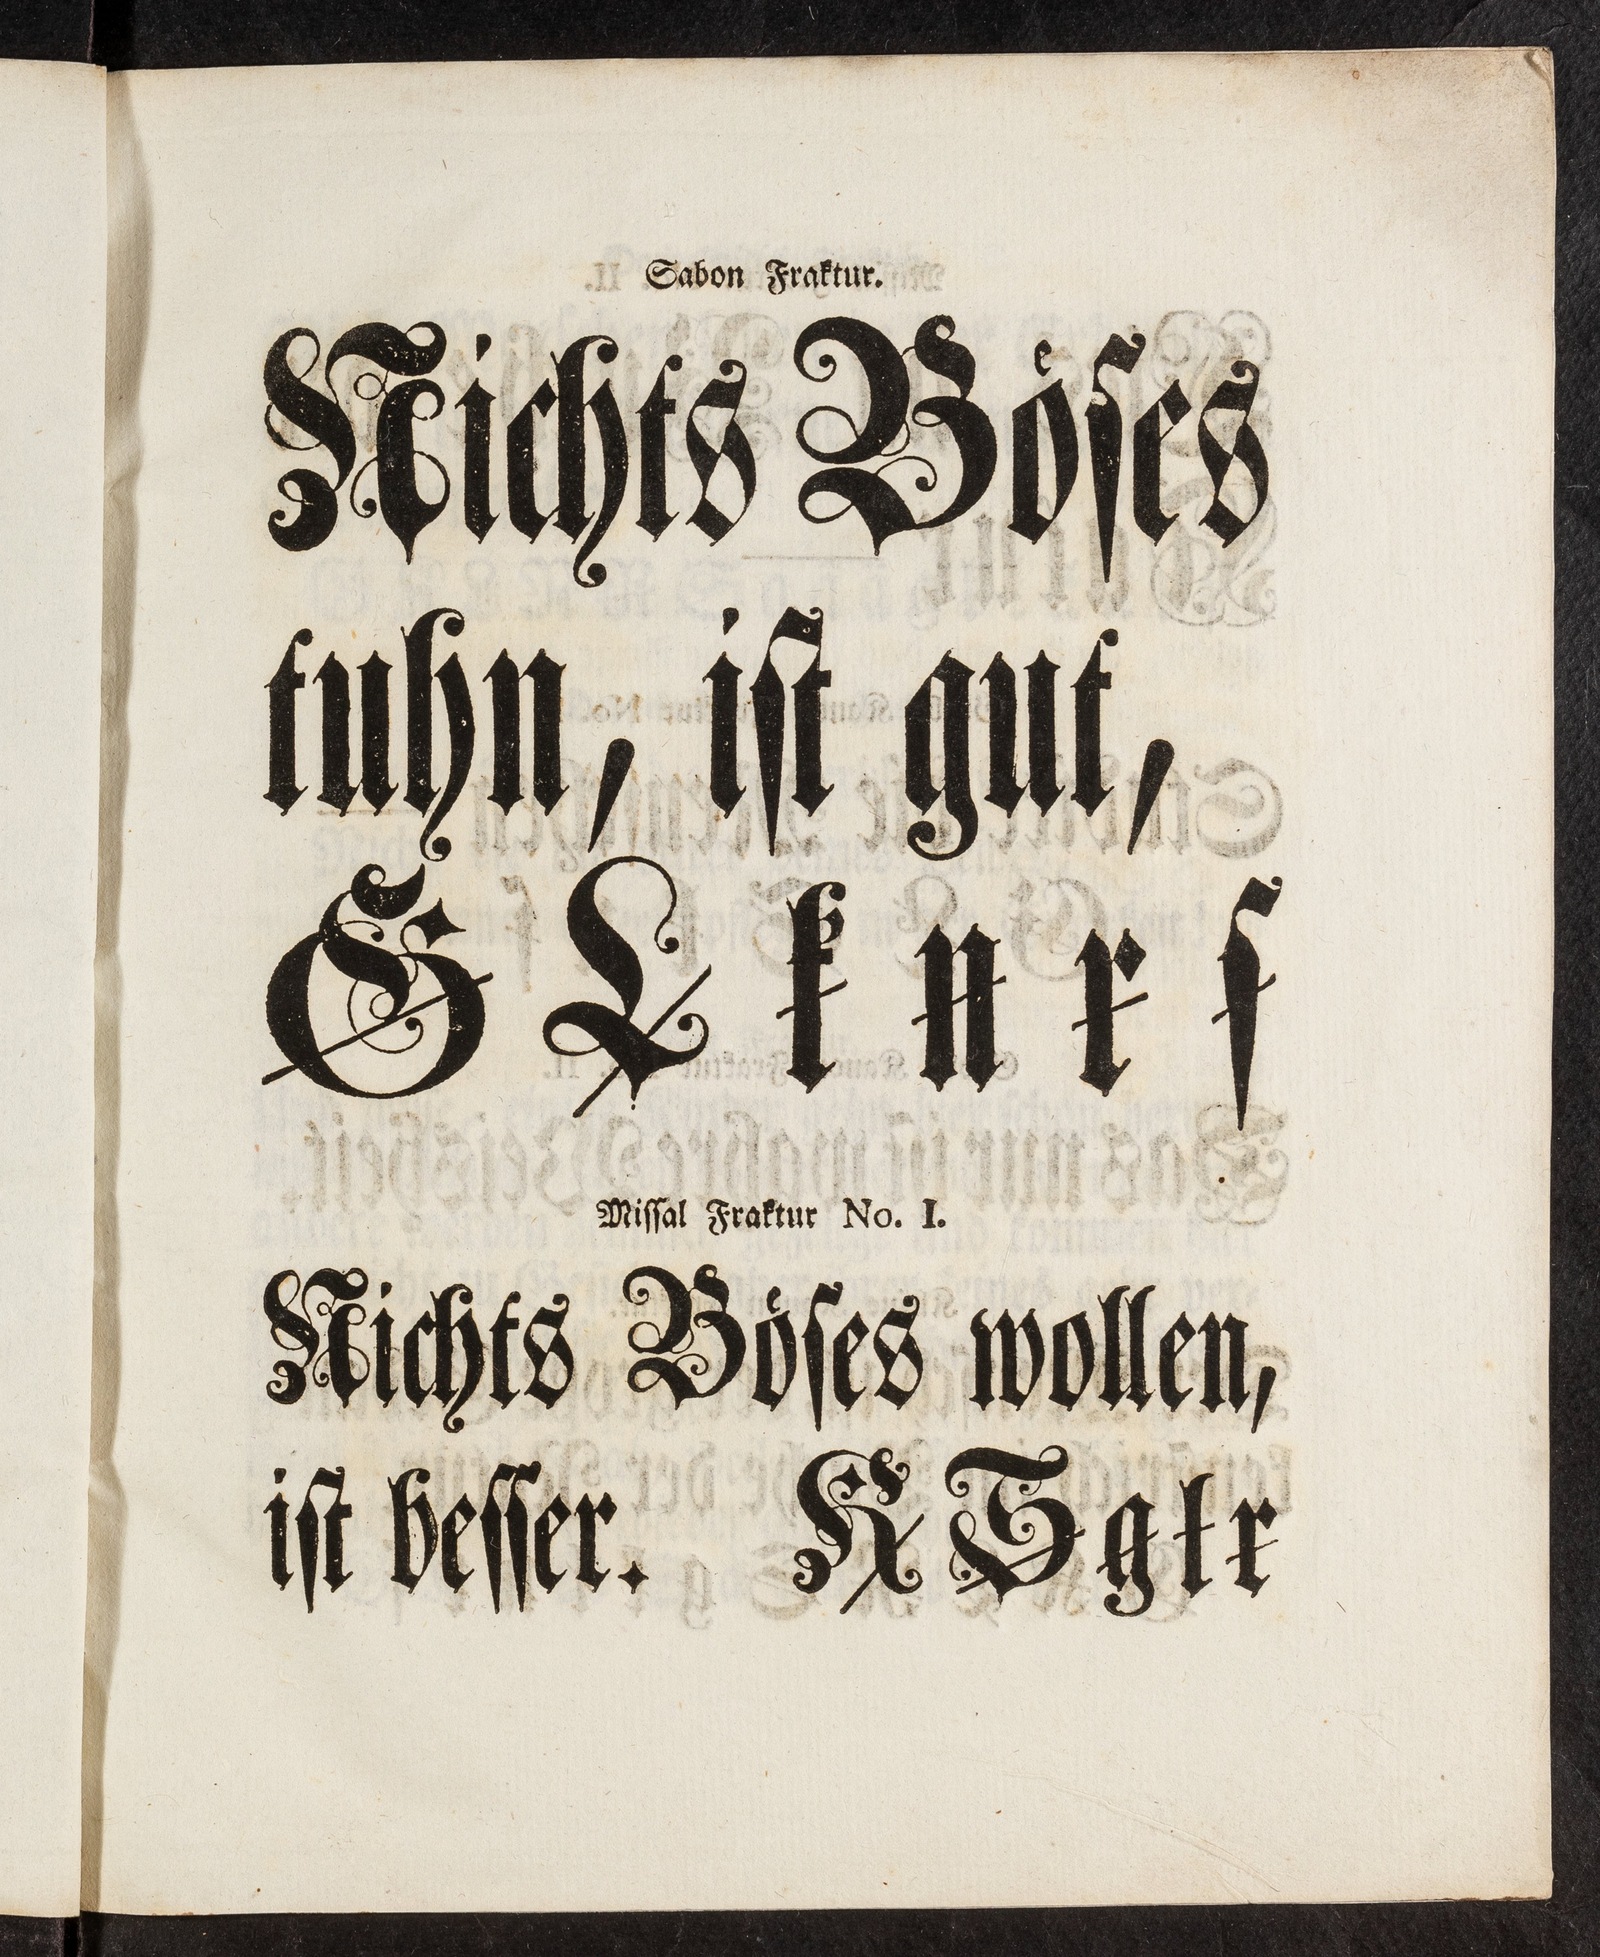 Sabon Fraktur.
Nichts Boͤſes
tuhn, iſt gut,
G L k n r ſ
Miſſal Fraktur No. I.
Nichts Boͤſes wollen,
iſt beſſer. K T g t r